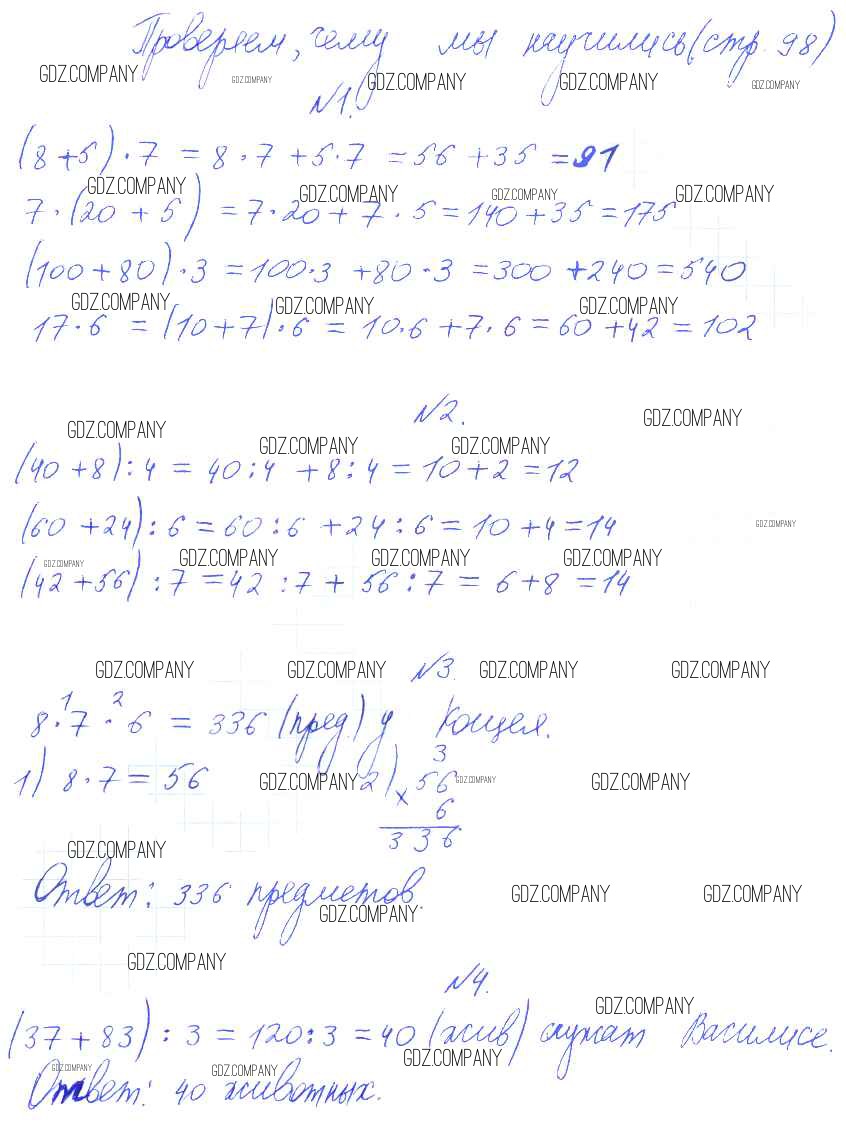 Проверяем, чему мы научились (стр. 98)
GDZ.COMPANY GDZ.COMPANY GDZ.COMPANY GDZ.COMPANY GDZ.COMPANY
№1.
(8+5)·7 = 8·7+5·7 = 56+35 = 91
GDZ.COMPANY GDZ.COMPANY GDZ.COMPANY GDZ.COMPANY
7·(20+5) = 7·20+7·5 = 140+35 = 175
(100+80)·3 = 100·3+80·3 = 300+240 = 540
GDZ.COMPANY GDZ.COMPANY GDZ.COMPANY
17·6 = (10+7)·6 = 10·6+7·6 = 60+42 = 102
№2.
GDZ.COMPANY GDZ.COMPANY GDZ.COMPANY GDZ.COMPANY
(40+8):4 = 40:4+8:4 = 10+2 = 12
(60+24):6 = 60:6+24:6 = 10+4 = 14
GDZ.COMPANY
GDZ.COMPANY GDZ.COMPANY GDZ.COMPANY GDZ.COMPANY
(42+56):7 = 42:7+56:7 = 6+8 = 14
GDZ.COMPANY GDZ.COMPANY №3. GDZ.COMPANY GDZ.COMPANY
1 2
8·7·6 = 336 (пред.) у Кощея.
3
1) 8·7 = 56 GDZ.COMPANY 2) 56 GDZ.COMPANY GDZ.COMPANY
× 6
336
GDZ.COMPANY
Ответ: 336 предметов.
GDZ.COMPANY GDZ.COMPANY GDZ.COMPANY
GDZ.COMPANY
№4.
GDZ.COMPANY
(37+83):3 = 120:3 = 40 (жив) служат Василисе.
GDZ.COMPANY GDZ.COMPANY GDZ.COMPANY
Ответ: 40 животных.